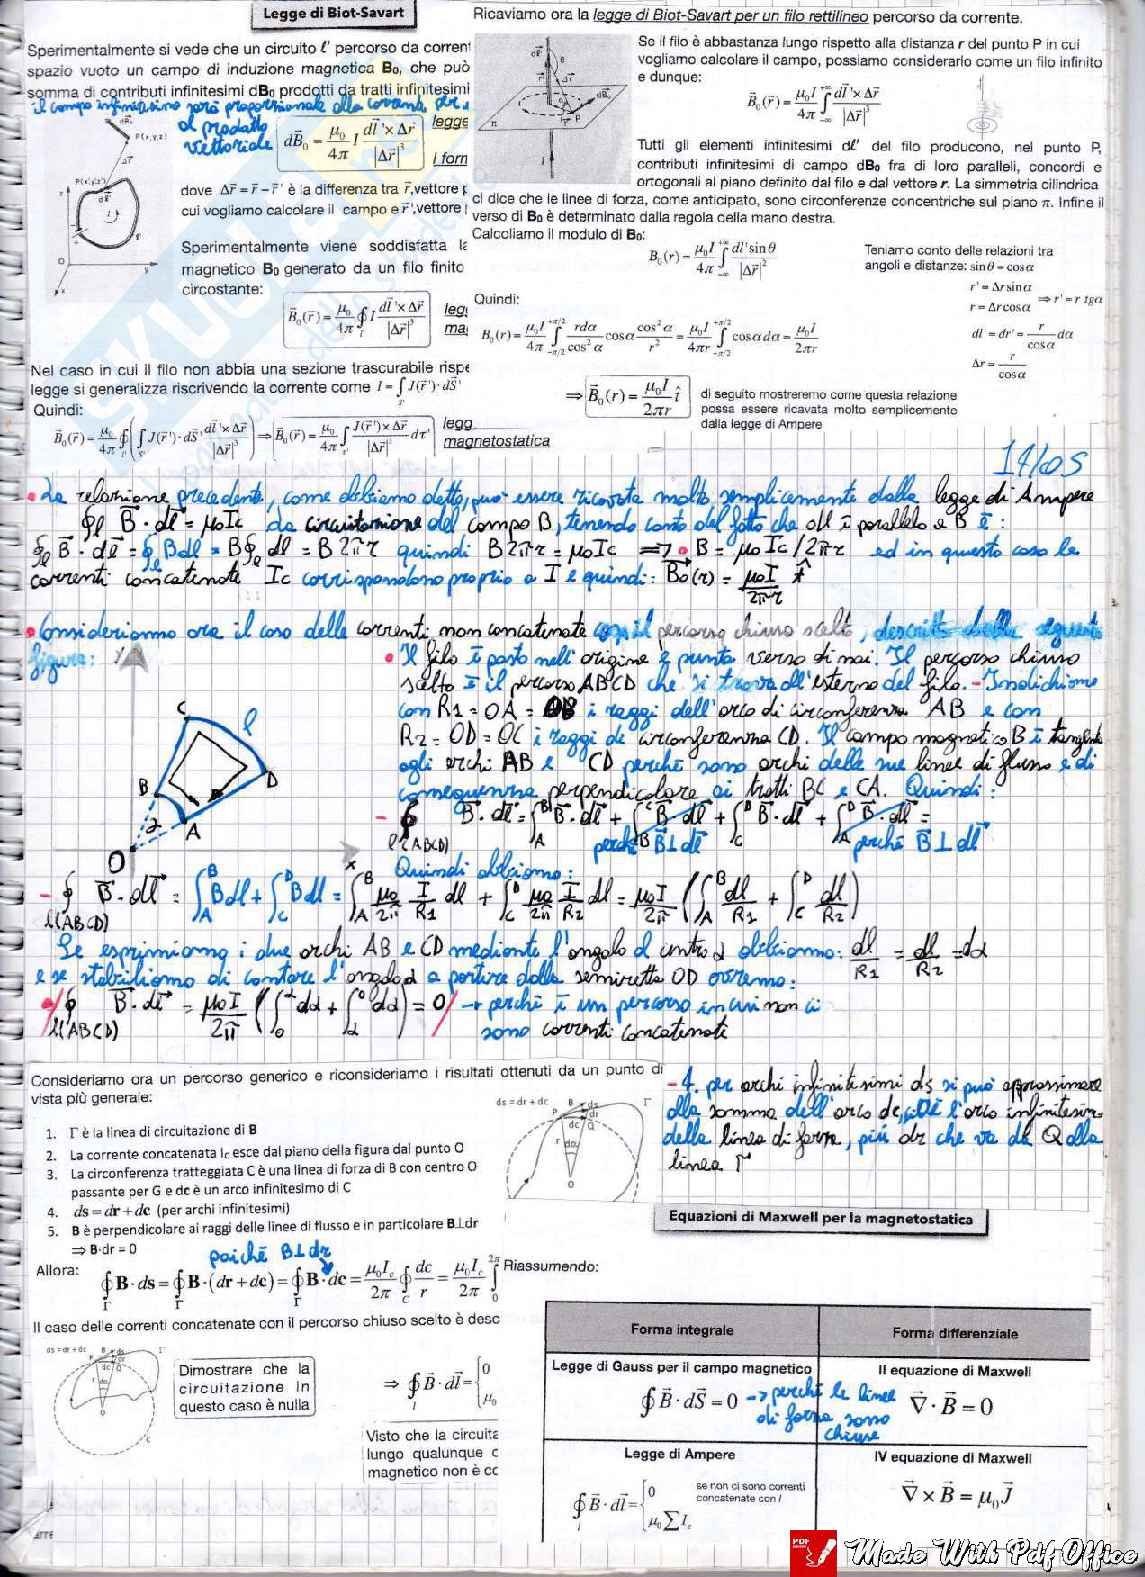 Legge di Biot-Savart
Sperimentalmente si vede che un circuito ℓ' percorso da corrent
spazio vuoto un campo di induzione magnetica B₀, che può
somma di contributi infinitesimi dB₀ prodotti da tratti infinitesimi
il campo infinitesimo sarà proporzionale alla corrente, per
al prodotto
vettoriale
dB₀ = μ₀/4π I dl' × Δr / |Δr|³
legge
i form
P(x,y,z)
dove Δr = r − r' è la differenza tra r, vettore p
cui vogliamo calcolare il campo e r', vettore
Sperimentalmente viene soddisfatta la
magnetico B₀ generato da un filo finito
circostante:
B₀(r) = μ₀/4π ∮ I dl' × Δr / |Δr|³
legg
ma
Nel caso in cui il filo non abbia una sezione trascurabile rispe
legge si generalizza riscrivendo la corrente come I = ∫ J(r')·dS'
Quindi:
B₀(r) = μ₀/4π ∮ (∫ J(r')·dS' dl' × Δr / |Δr|³) ⇒ B₀(r) = μ₀/4π ∫ J(r') × Δr / |Δr|³ dτ'
legg
magnetostatica
Ricaviamo ora la legge di Biot-Savart per un filo rettilineo percorso da corrente.
Se il filo è abbastanza lungo rispetto alla distanza r del punto P in cui
vogliamo calcolare il campo, possiamo considerarlo come un filo infinito
e dunque:
B₀(r) = μ₀I/4π ∫ dl' × Δr / |Δr|³
Tutti gli elementi infinitesimi dℓ' del filo producono, nel punto P,
contributi infinitesimi di campo dB₀ fra di loro paralleli, concordi e
ortogonali al piano definito dal filo e dal vettore r. La simmetria cilindrica
ci dice che le linee di forza, come anticipato, sono circonferenze concentriche sul piano π. Infine il
verso di B₀ è determinato dalla regola della mano destra.
Calcoliamo il modulo di B₀:
B₀(r) = μ₀I/4π ∫ dl' sin θ / |Δr|²
Teniamo conto delle relazioni tra
angoli e distanze: sin θ = cos α
r' = Δr sin α
r = Δr cos α ⇒ r' = r tg α
dl = dr' = r/cos α dα
Δr = r/cos α
Quindi:
B₀(r) = μ₀I/4π ∫ rdα/cos²α cos α cos²α/r² = μ₀I/4πr ∫ cos α dα = μ₀I/2πr
⇒ B₀(r) = μ₀I/2πr î
di seguito mostreremo come questa relazione
possa essere ricavata molto semplicemente
dalla legge di Ampere
17/05
• La relazione precedente, come abbiamo detto, può essere ricavata molto semplicemente dalla legge di Ampere
∮ℓ B · dl = μ₀Ic la circuitazione del campo B, tenendo conto del fatto che dl è parallelo a B è:
∮ℓ B · dl = ∮ℓ Bdl = B∮ℓ dl = B2πr quindi B2πr = μ₀Ic ⇒ • B = μ₀Ic/2πr ed in questo caso le
correnti concatenate Ic corrispondono proprio a I e quindi: B₀(r) = μ₀I/2πr r̂
• Consideriamo ora il caso delle correnti non concatenate con il percorso chiuso scelto, descritto dalla seguente
figura:
y
C
ℓ
B
D
α
A
O
x
• Il filo è posto nell'origine e punta verso di noi. Il percorso chiuso
scelto è il percorso ABCD che si trova all'esterno del filo. - Indichiamo
con R1 = OA = OB i raggi dell'arco di circonferenza AB e con
R2 = OD = OC i raggi di circonferenza CD. Il campo magnetico B è tangente
agli archi AB e CD perché sono archi delle sue linee di flusso e di
conseguenza perpendicolare ai tratti BC e CA. Quindi:
- ∮ℓ(ABCD) B · dl = ∫ₐᴮ B · dl + ∫_B^C B · dl + ∫_C^D B · dl + ∫_A^D B · dl =
perché B ⊥ dl
perché B ⊥ dl
Quindi abbiamo:
- ∮ℓ(ABCD) B · dl = ∫_A^B Bdl + ∫_C^D Bdl = ∫_A^B μ₀/2π I/R1 dl + ∫_C^D μ₀/2π I/R2 dl = μ₀I/2π (∫_A^B dl/R1 + ∫_C^D dl/R2)
Se esprimiamo i due archi AB e CD mediante l'angolo al centro α abbiamo: dl/R1 = dl/R2 = dα
e se stabiliamo di contare l'angolo α a partire dalla semiretta OD avremo:
∮ℓ(ABCD) B · dl = μ₀I/2π (∫₀^α dα + ∫_α^0 dα) = 0 → perché è un percorso in cui non ci
sono correnti concatenate
Consideriamo ora un percorso generico e riconsideriamo i risultati ottenuti da un punto di
vista più generale:
1. Γ è la linea di circuitazione di B
2. La corrente concatenata Ic esce dal piano della figura dal punto O
3. La circonferenza tratteggiata C è una linea di forza di B con centro O
passante per G e dc è un arco infinitesimo di C
4. ds = dr + dc (per archi infinitesimi)
5. B è perpendicolare ai raggi delle linee di flusso e in particolare B⊥dr
⇒ B·dr = 0
poiché B⊥dr
Allora:
∮ B · ds = ∮ B · (dr + dc) = ∮ B · dc = μ₀Ic/2π ∮ dc/r = μ₀Ic/2π ∫₀^2π
Il caso delle correnti concatenate con il percorso chiuso scelto è desc
ds = dr + dc
Dimostrare che la
circuitazione in
questo caso è nulla
⇒ ∮ B · dl = { 0
μ₀
Visto che la circuita
lungo qualunque c
magnetico non è cc
ds = dr + dc
- 4. per archi infinitesimi ds si può approssimare
alla somma dell'arco dc, cioè l'arco infinitesim.
della linea di forza, più dr che va da Q alla
linea Γ
Equazioni di Maxwell per la magnetostatica
Riassumendo:
Forma integrale
Forma differenziale
Legge di Gauss per il campo magnetico
II equazione di Maxwell
∮ B · dS = 0
→ perché le linee
di forza sono
chiuse
∇ · B = 0
Legge di Ampere
IV equazione di Maxwell
∮ B · dl = { 0 se non ci sono correnti
concatenate con l
μ₀ ∑ Ic
∇ × B = μ₀ J
Made With Pdf Office